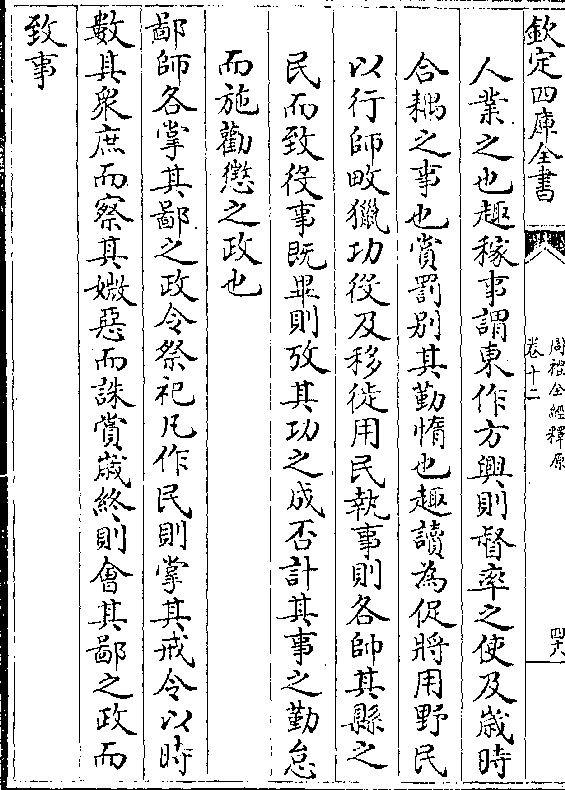 欽定四庫全書
周禮全經釋原
卷十二
四六
人業之也趣稼事謂東作方興則督率之使及歲時
合耦之事也賞罰別其勤惰也趣讀為促將用野民
以行師畋獵功役及移徙用民執事則各帥其縣之
民而致役事既畢則攷其功之成否計其事之勤怠
而施勸懲之政也
鄙師各掌其鄙之政令祭祀凡作民則掌其戒令以時
數其衆庶而察其媺惡而誅賞歲終則會其鄙之政而
致事